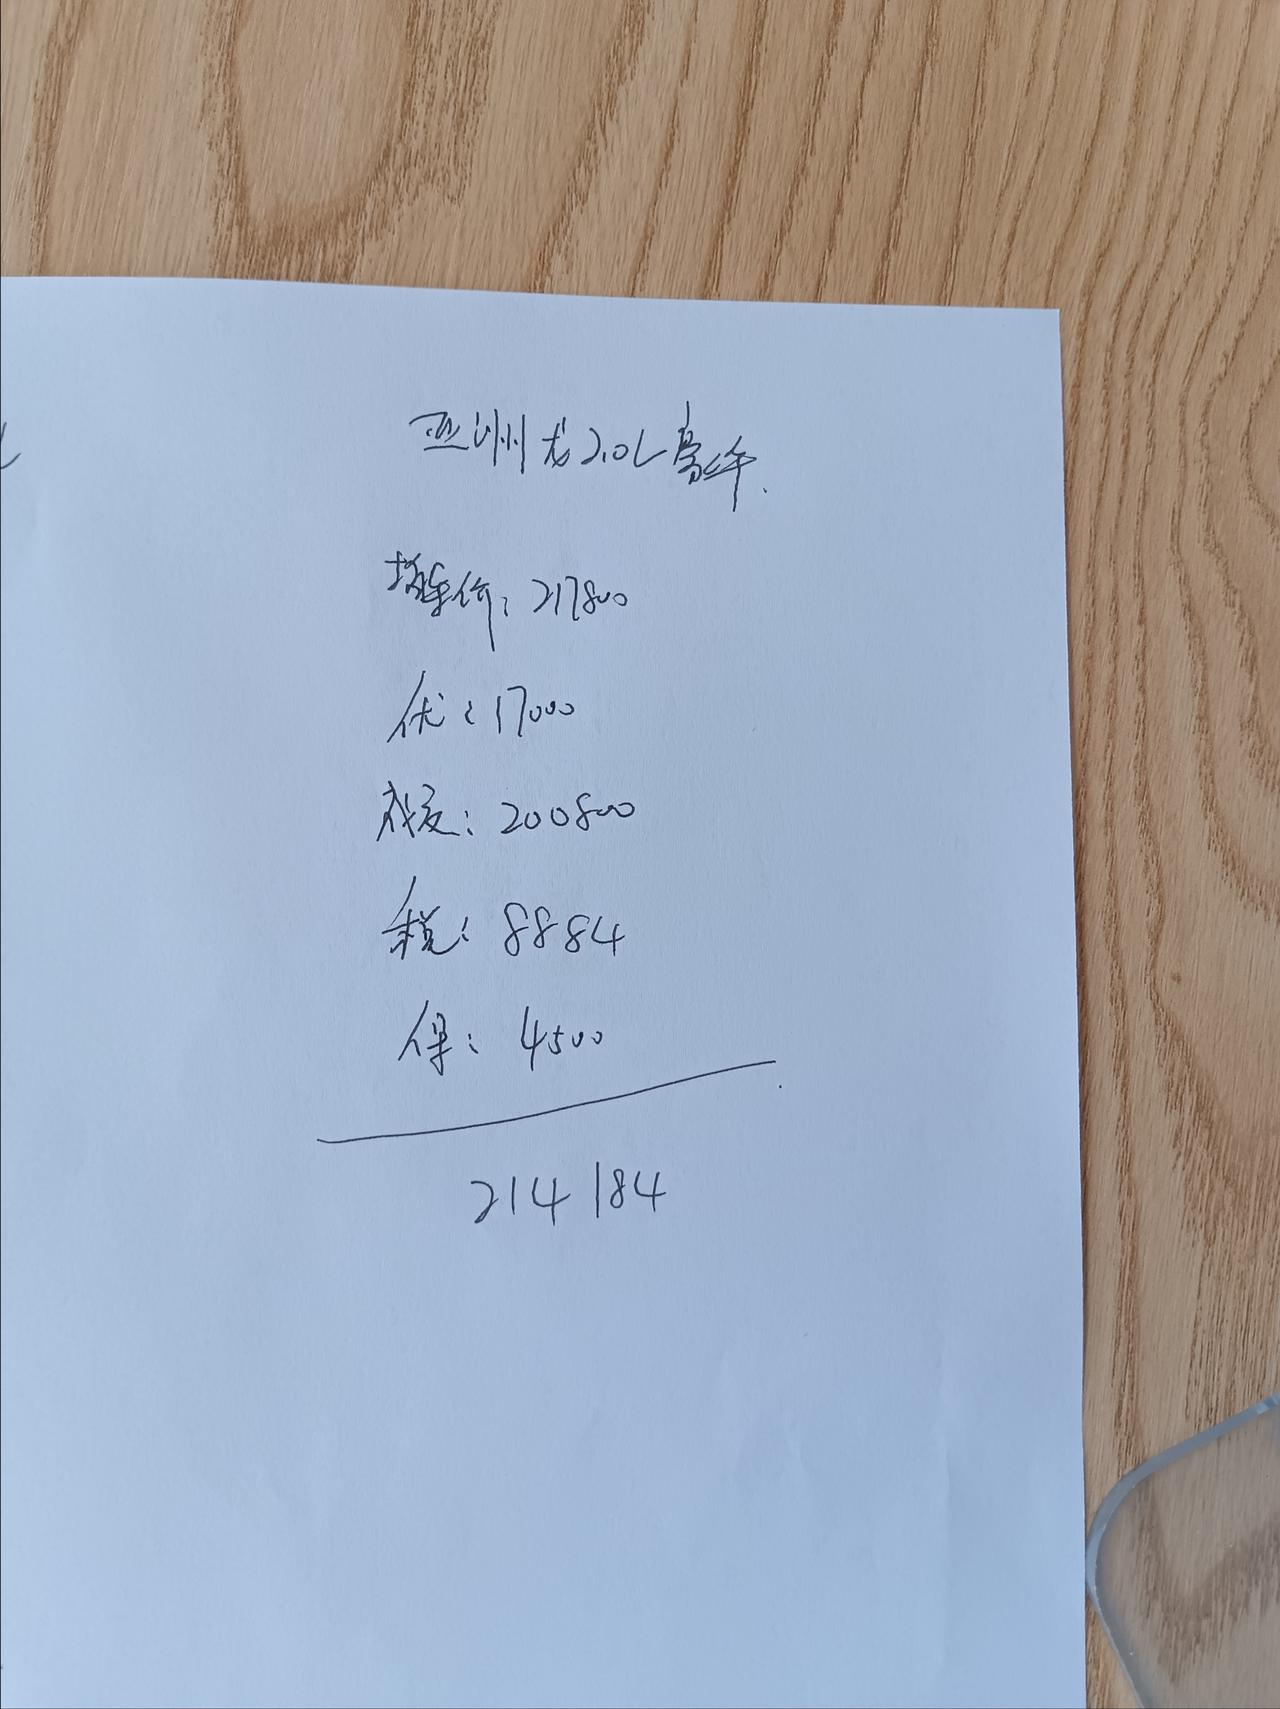 亚洲龙2.0L豪华.
指导价：217800
优：17000
成交：200800
税：8884
保：4500
214184